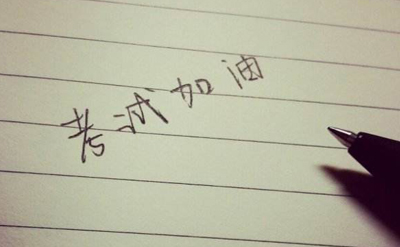 考试加油